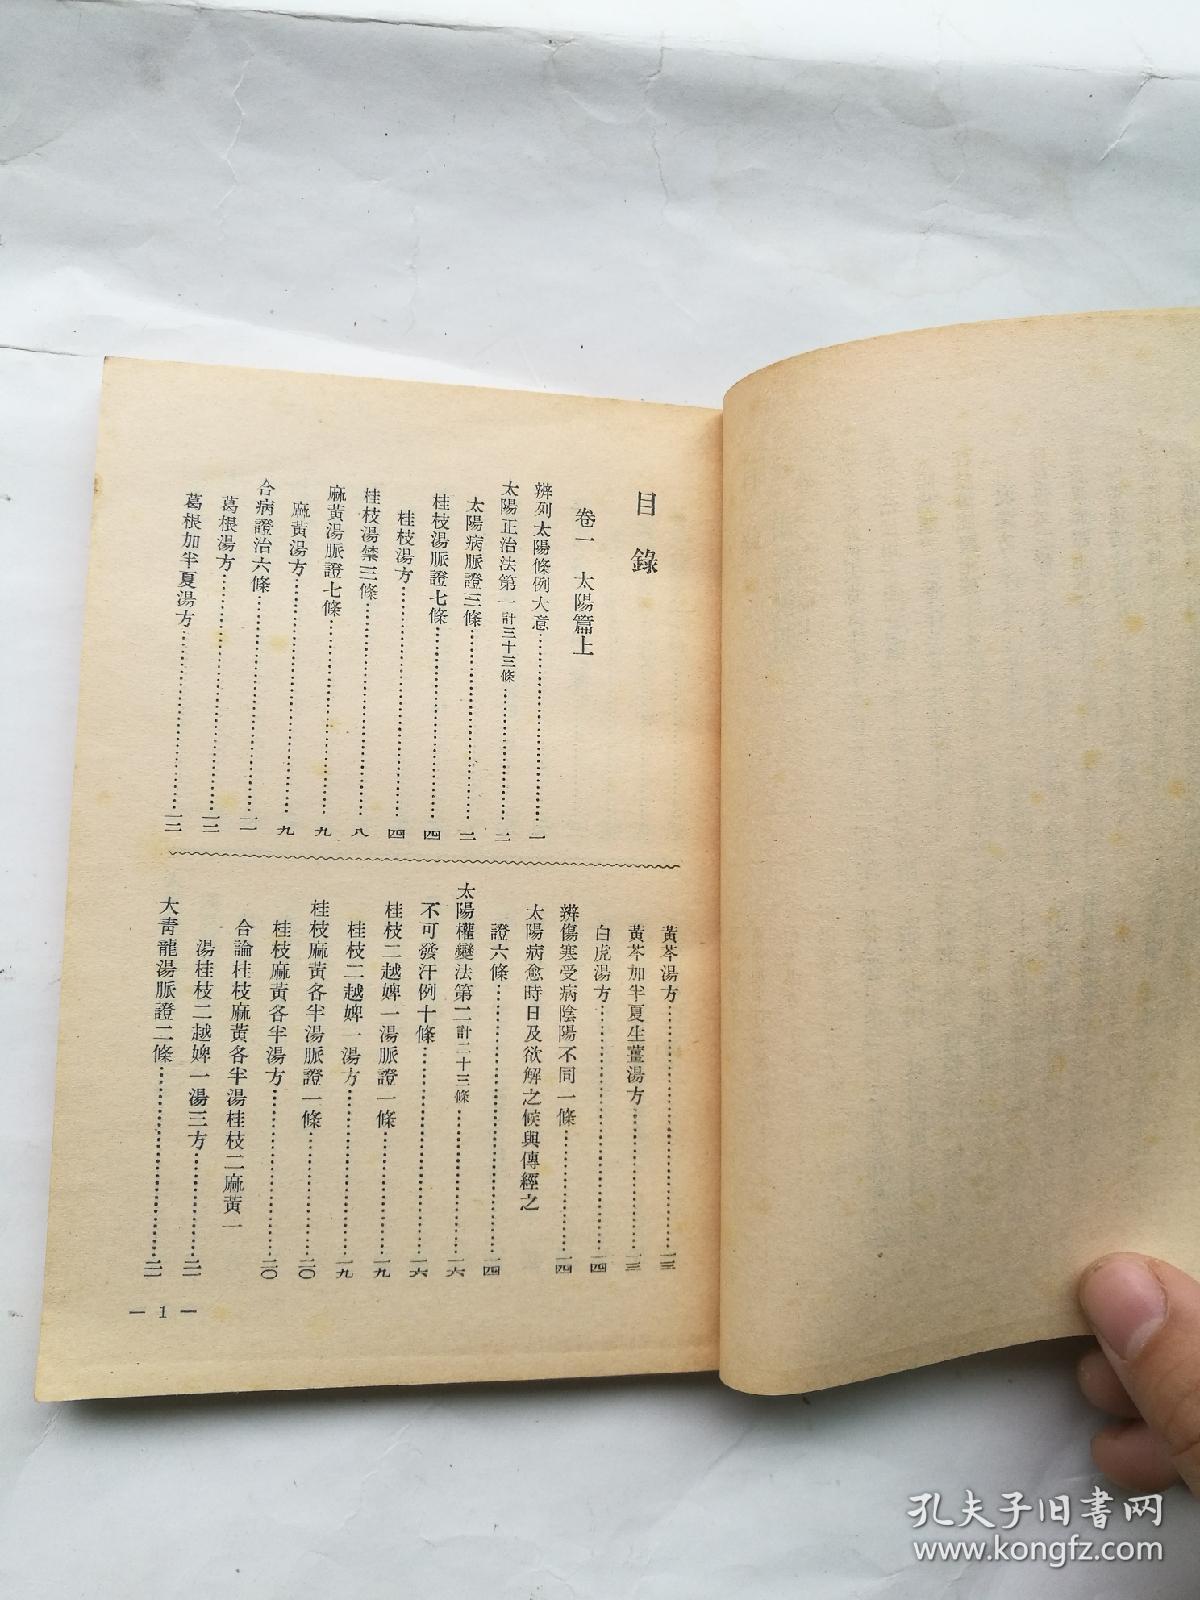 目錄
卷一 太陽篇上
辨列太陽條例大意………一
太陽正治法第一計三十三條………二
太陽病脈證三條………二
桂枝湯脈證七條………四
桂枝湯方………四
桂枝湯禁三條………八
麻黃湯脈證七條………九
麻黃湯方………九
合病證治六條………一一
葛根湯方………一二
葛根加半夏湯方………一二
黃芩湯方………一三
黃芩加半夏生薑湯方………一三
白虎湯方………一四
辨傷寒受病陰陽不同一條………一四
太陽病愈時日及欲解之候與傳經之
證六條………一四
太陽權變法第二計二十三條………一六
不可發汗例十條………一六
桂枝二越婢一湯脈證一條………一九
桂枝二越婢一湯方………一九
桂枝麻黃各半湯脈證一條………二〇
桂枝麻黃各半湯方………二〇
合論桂枝麻黃各半湯桂枝二麻黃一
湯桂枝二越婢一湯三方………二一
大青龍湯脈證二條………二一
— 1 —
孔夫子旧书网
www.kongfz.com